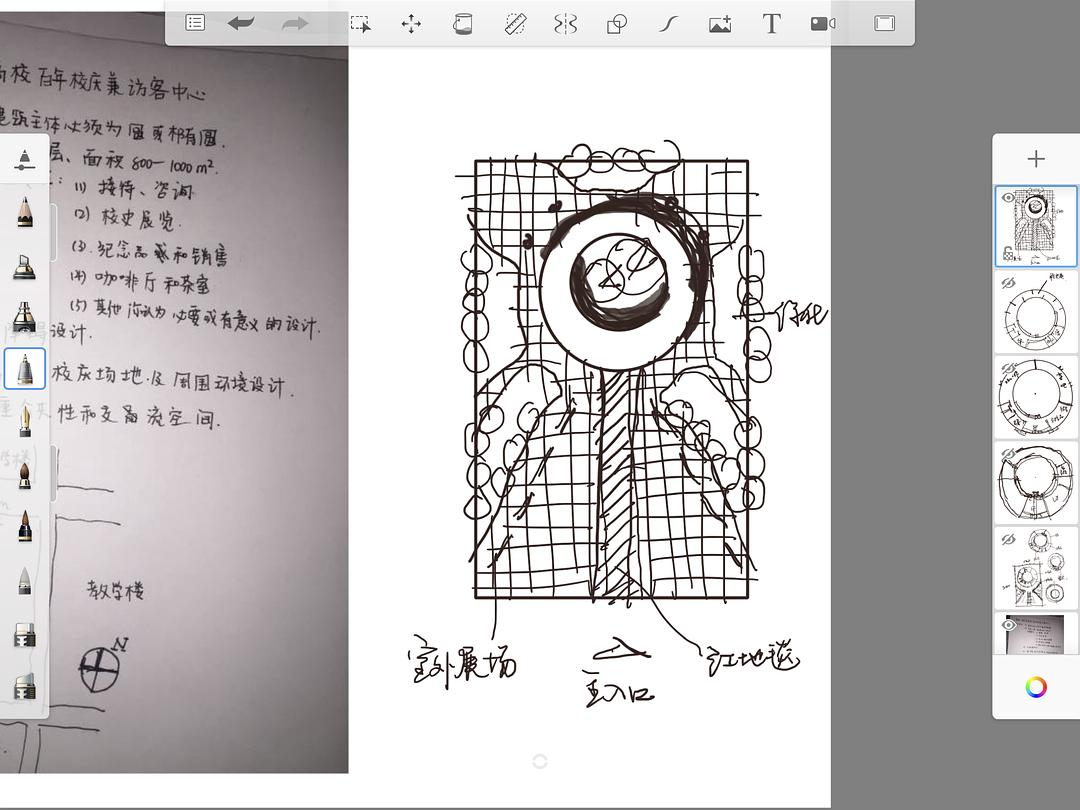 校百年校庆兼访客中心
建筑主体必须为圆或椭圆.
层、面积 800—1000m².
(1) 接待、咨询
(2) 校史展览.
(3). 纪念品 和销售
(4) 咖啡厅和茶室
(5) 其他你认为必要或有意义的设计.
设计.
校庆场地及周围环境设计.
性和交 流空间.
教学楼
N
绿化
室外展场
主入口
红地毯
T